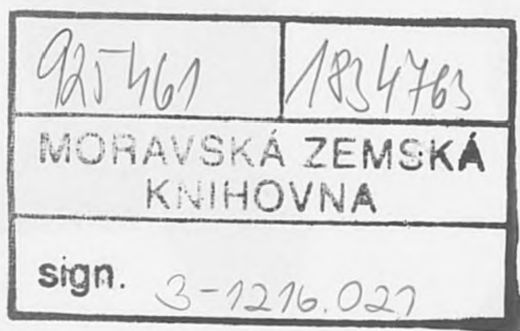 925461 1834763
MORAVSKÁ ZEMSKÁ
KNIHOVNA
sign. 3-1216.021